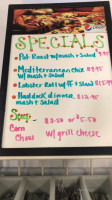 SPECIALS
• Pot Roast w/mash + Salad $9.95
• Mediterranean chix $9.95
w/mash + Salad
• Lobster Roll w/ FF + Slaw $15.99
• Haddock dinner $12.90
mash + salad
Soup- $3.50 or $5.50
Corn
Chow. w/grill cheese